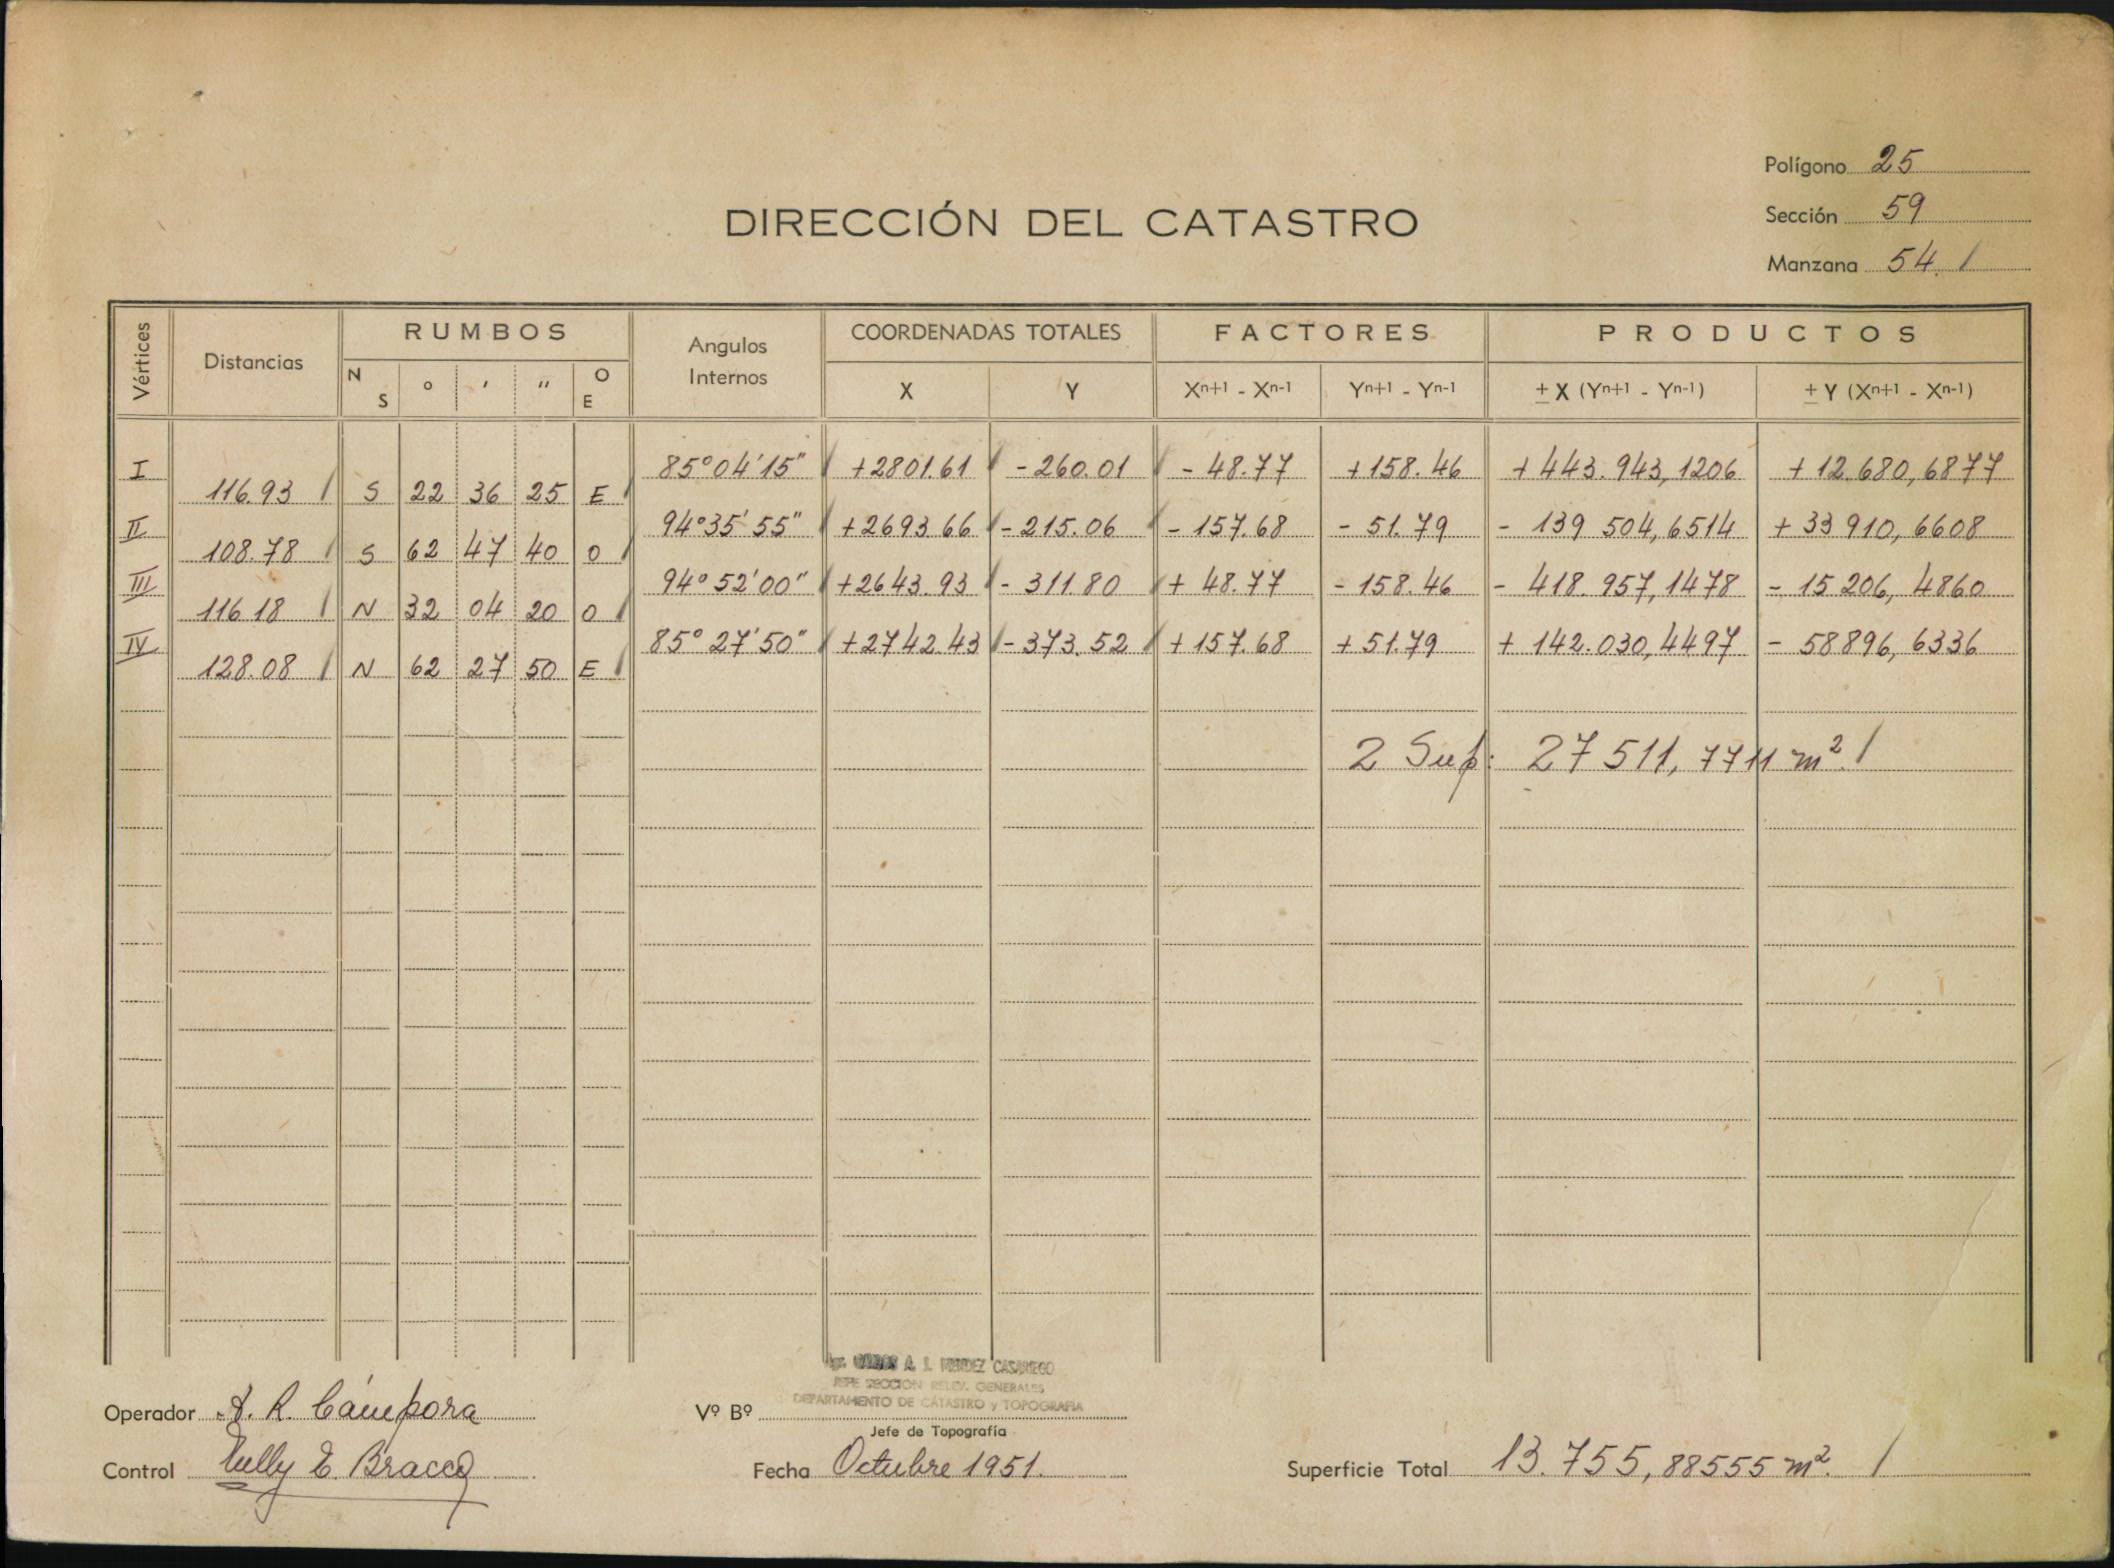 Polígono 25
DIRECCIÓN DEL CATASTRO
Sección 59
Manzana 54. /
Vértices Distancias RUMBOS Angulos Internos COORDENADAS TOTALES FACTORES PRODUCTOS
N S ° ' " O E X Y Xn+1 - Xn-1 Yn+1 - Yn-1 ± X (Yn+1 - Yn-1) ± Y (Xn+1 - Xn-1)
I 85°04'15" / +2801.61 / -260.01 / - 48.77 +158.46 + 443.943,1206 + 12.680,6877
116.93 / S 22 36 25 E /
II 94°35'55" / +2693.66 / -215.06 / - 157.68 - 51.79 - 139 504,6514 + 33 910,6608
108.78 / S 62 47 40 O /
III 94°52'00" / +2643.93 / - 311.80 / + 48.77 - 158.46 - 418.957,1478 - 15 206,4860
116.18 / N 32 04 20 O /
IV 85°27'50" / +2742.43 / - 373.52 / + 157.68 + 51.79 + 142.030,4497 - 58896,6336
128.08 / N 62 27 50 E /
2 Sup: 27 511,7711 m² /
A. J. MENDEZ CASARIEGO
JEFE SECCION RELEV. GENERALES
DEPARTAMENTO DE CATASTRO y TOPOGRAFIA
Operador A. R. Cámpora Vº Bº
Jefe de Topografía
Control Nelly E. Bracco Fecha Octubre 1951. Superficie Total 13.755,88555 m². /